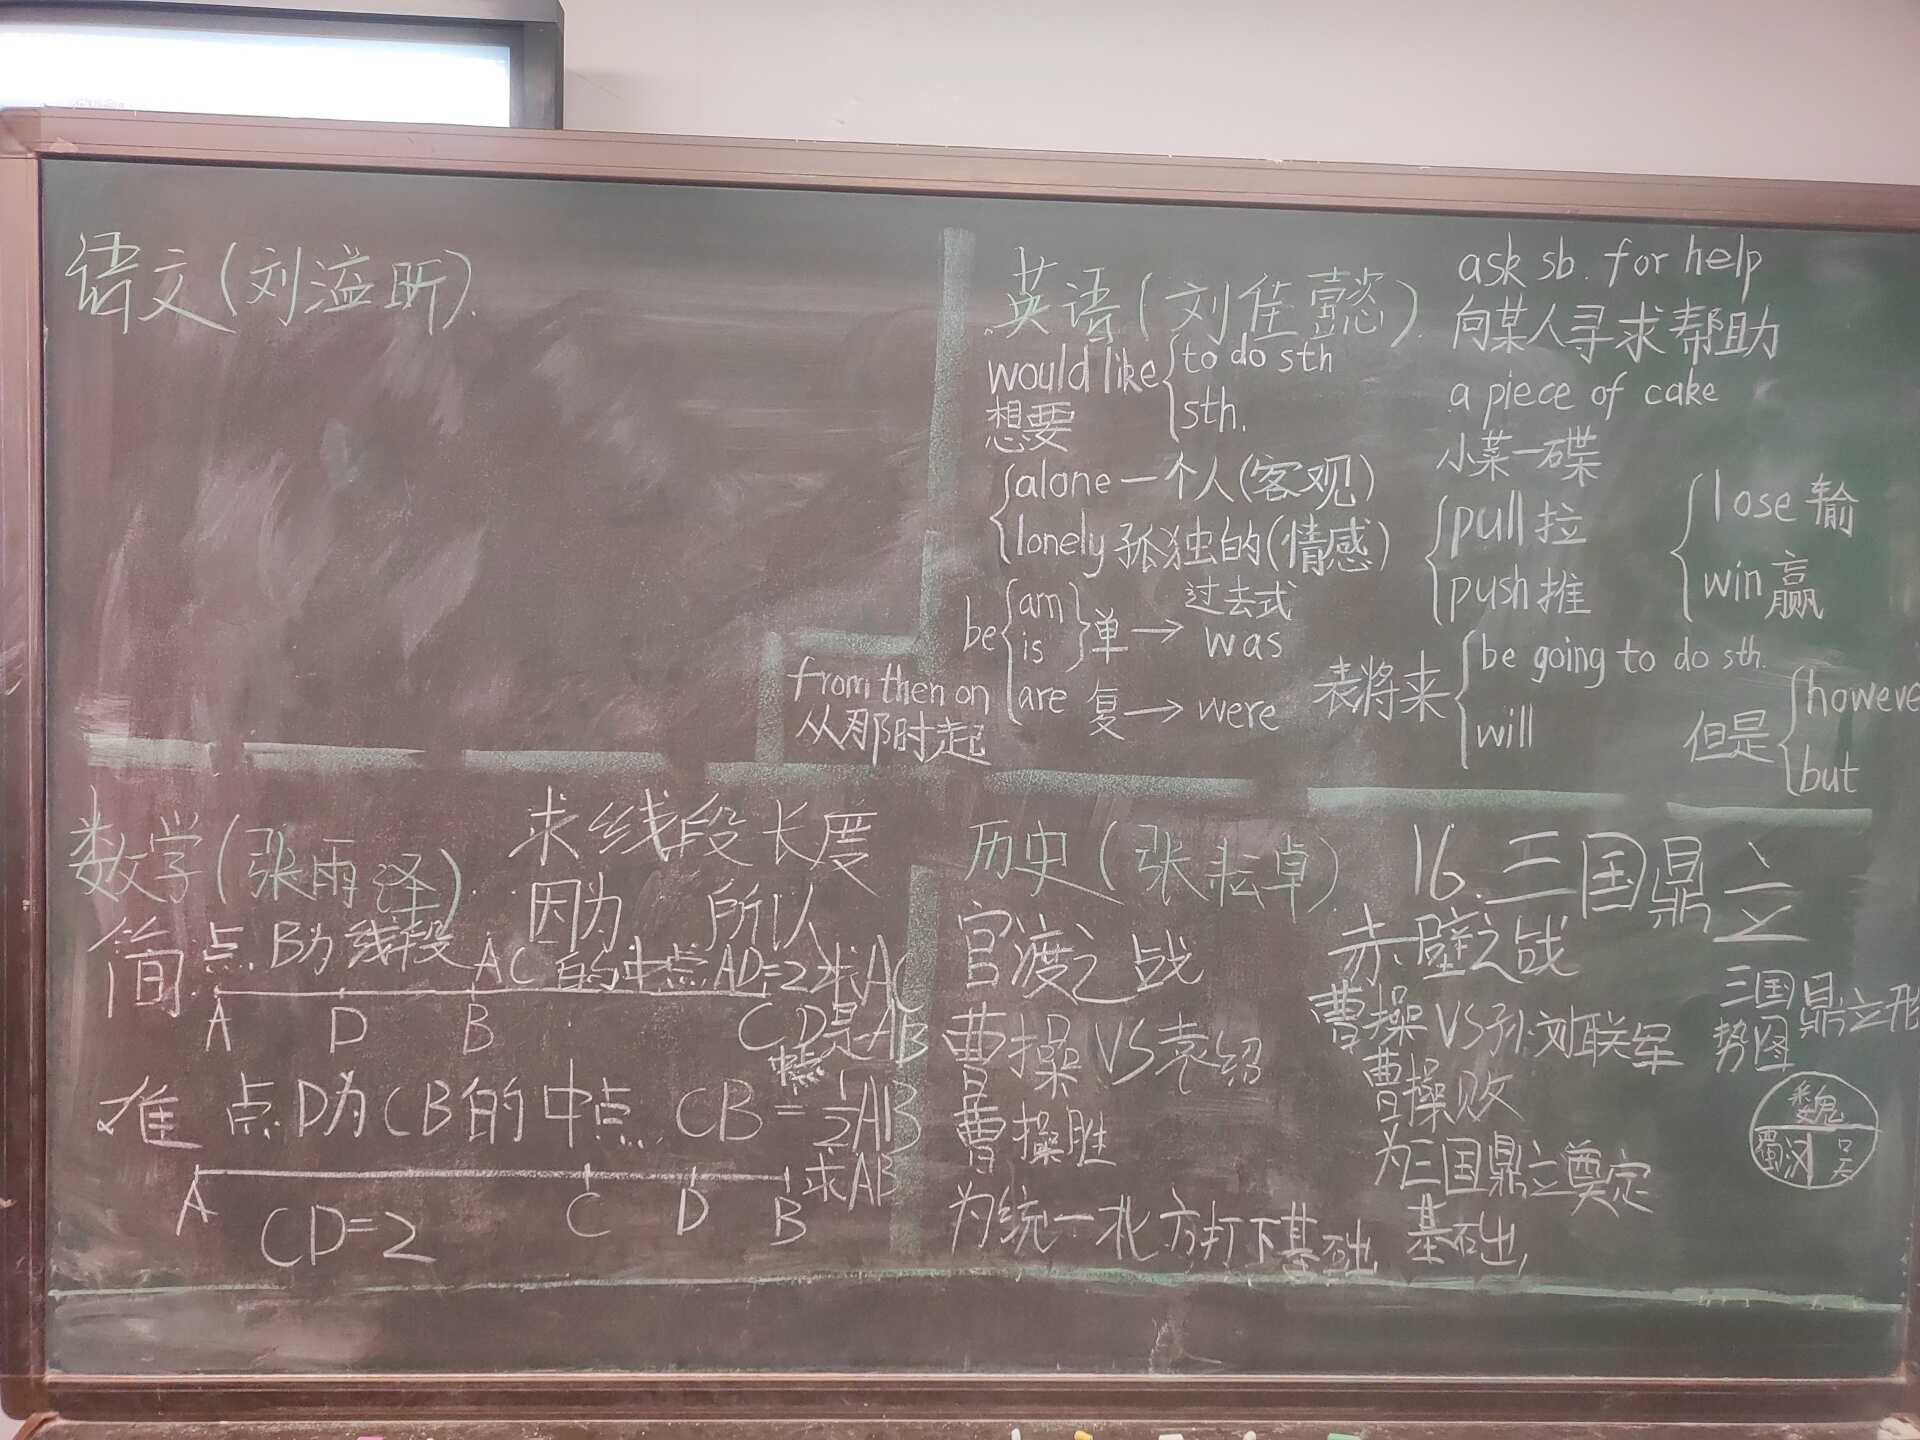 语文(刘溢昕)
英语(刘佳懿)
would like
to do sth
sth.
想要
alone 一个人(客观)
lonely 孤独的(情感)
be
am
is
are
单 → 过去式
was
复 → were
from then on
从那时起
ask sb. for help
向某人寻求帮助
a piece of cake
小菜一碟
pull 拉
push 推
lose 输
win 赢
表将来
be going to do sth.
will
但是
howeve
but
数学(张雨泽)
求线段长度
因为 所以
简 点B为线段AC的中点AD=2求AC
D是AB
中点
A D B C
难 点D为CB的中点 CB=½AB
求AB
A C D B
CD=2
历史(张耘卓)
16.三国鼎立
官渡之战
曹操VS袁绍
曹操胜
为统一北方打下基础
赤壁之战
曹操VS孙刘联军
曹操败
为三国鼎立奠定
基础
三国鼎立形
势图
魏
蜀汉 吴